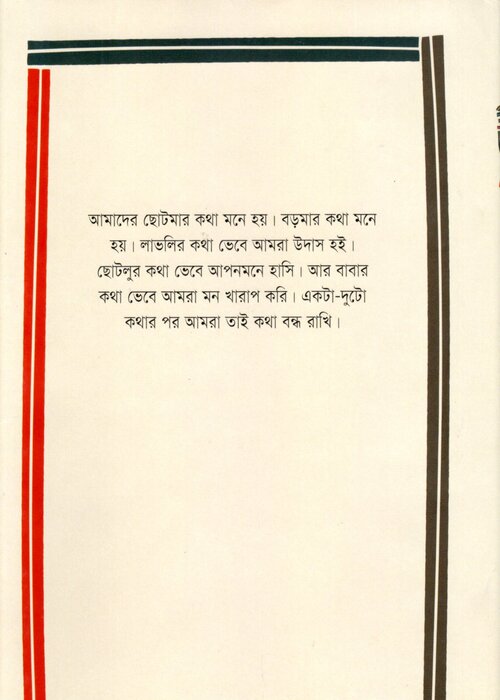 আমাদের ছোটমার কথা মনে হয়। বড়মার কথা মনে
হয়। লাভলির কথা ভেবে আমরা উদাস হই।
ছোটলুর কথা ভেবে আপনমনে হাসি। আর বাবার
কথা ভেবে আমরা মন খারাপ করি। একটা-দুটো
কথার পর আমরা তাই কথা বন্ধ রাখি।